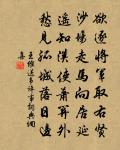 欲逐將軍取右賢
沙場走馬向居延
遙知漢使蕭關外
愁見孤城落日邊
王維送韋評事詞典網
集